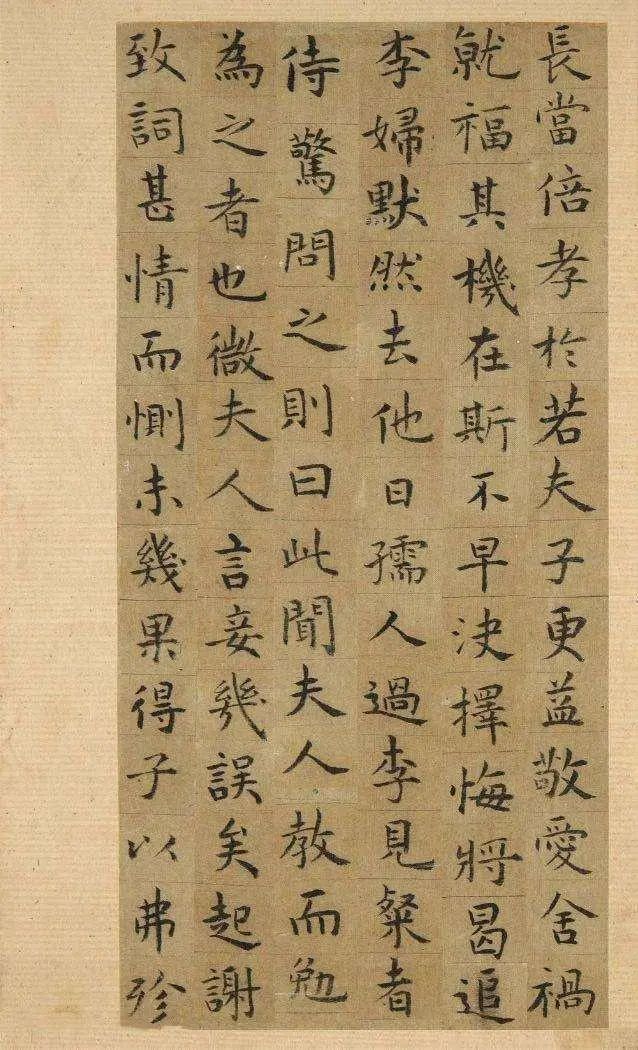 長當倍孝於若夫子更益敬愛舍禍
就福其機在斯不早決擇悔將曷追
李婦默然去他日孺人過李見粲者
侍驚問之則曰此聞夫人教而勉
為之者也微夫人言妾幾誤矣起謝
致詞甚情而惻未幾果得子以弗殄